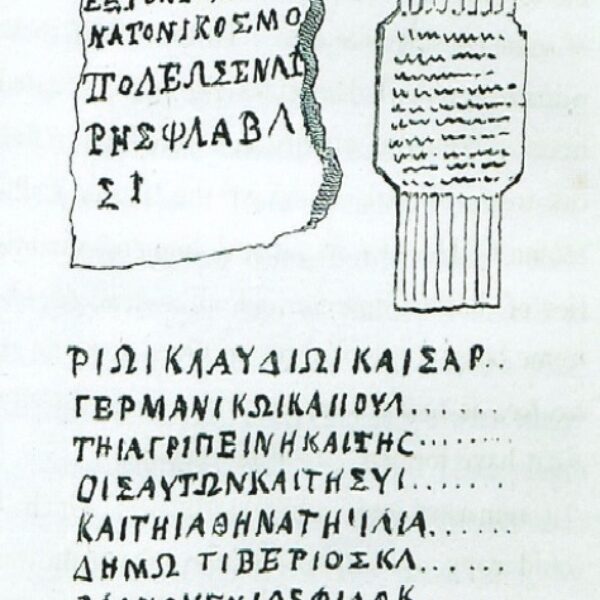 ΝΑΤΟΝΙΚΟΣΜΟ
ΠΟΛΕΩΣΕΝΛΙ
ΡΗΣΦΛΑΒΛ
ΣΙ
ΡΙΩΙΚΛΑΥΔΙΩΙΚΑΙΣΑΡ..
ΓΕΡΜΑΝΙΚΩΙΚΑΙΙΟΥΛ.........
ΤΗΙΑΓΡΙΠΕΙΝΗΚΑΙΤΗC........
ΟΙΣΑΥΤΩΝΚΑΙΤΗΣΥΙ.......
ΚΑΙΤΗΙΑΘΗΝΑΤΗΙΙΛΙΑ......
ΔΗΜΩ ΤΙΒΕΡΙΟΣΚΛ..